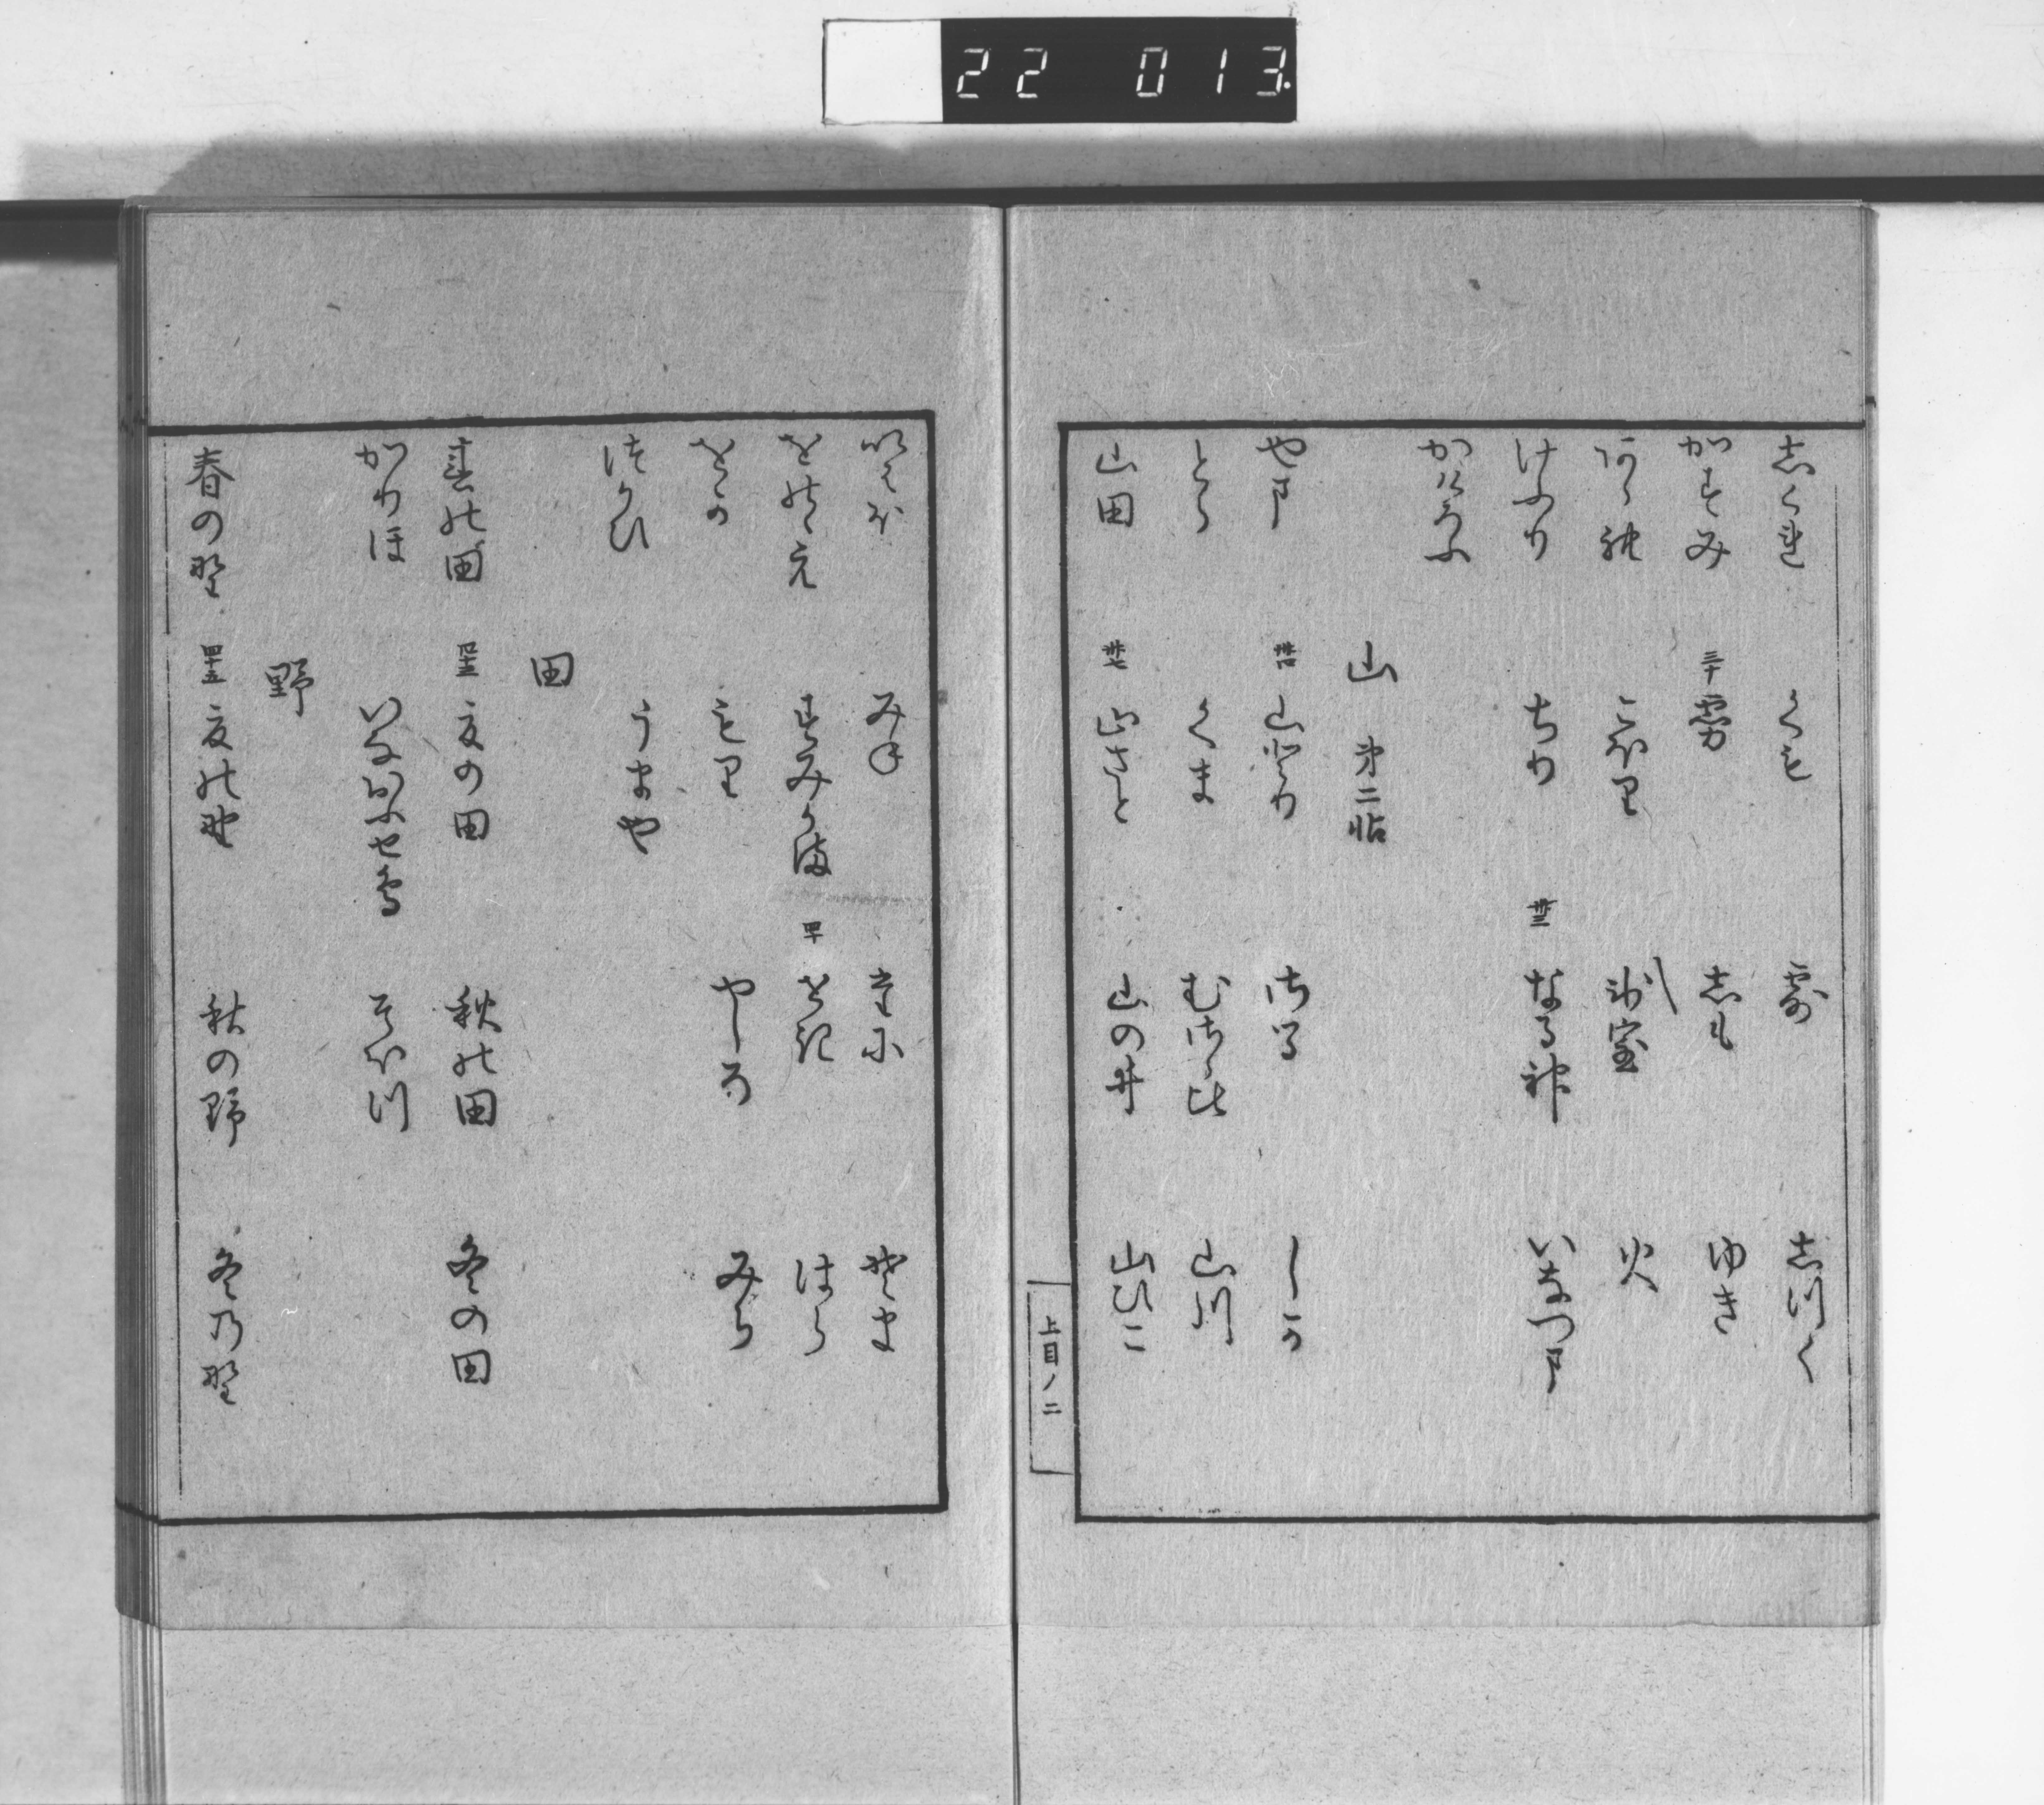 22 013
志くれ くも 露 志つく
かすみ 三十 霧 志も ゆき
あられ こほり 氷室 火
けふり ちり 卅三 なる神 いなつま
かけろふ
山 第二帖
やま 卅四 山とり さる しか
とら くま むさゝひ 山川
山田 卅七 山さと 山の井 山ひこ
上目ノ二
いはほ みね たに そま
をのゝえ すみかま 四十 せき はら
をか もり やしろ みち
つかひ うまや
田
春の田 四十三 夏の田 秋の田 冬の田
かりほ いなおほせ鳥 そほつ
野
春の野 四十五 夏の野 秋の野 冬の野